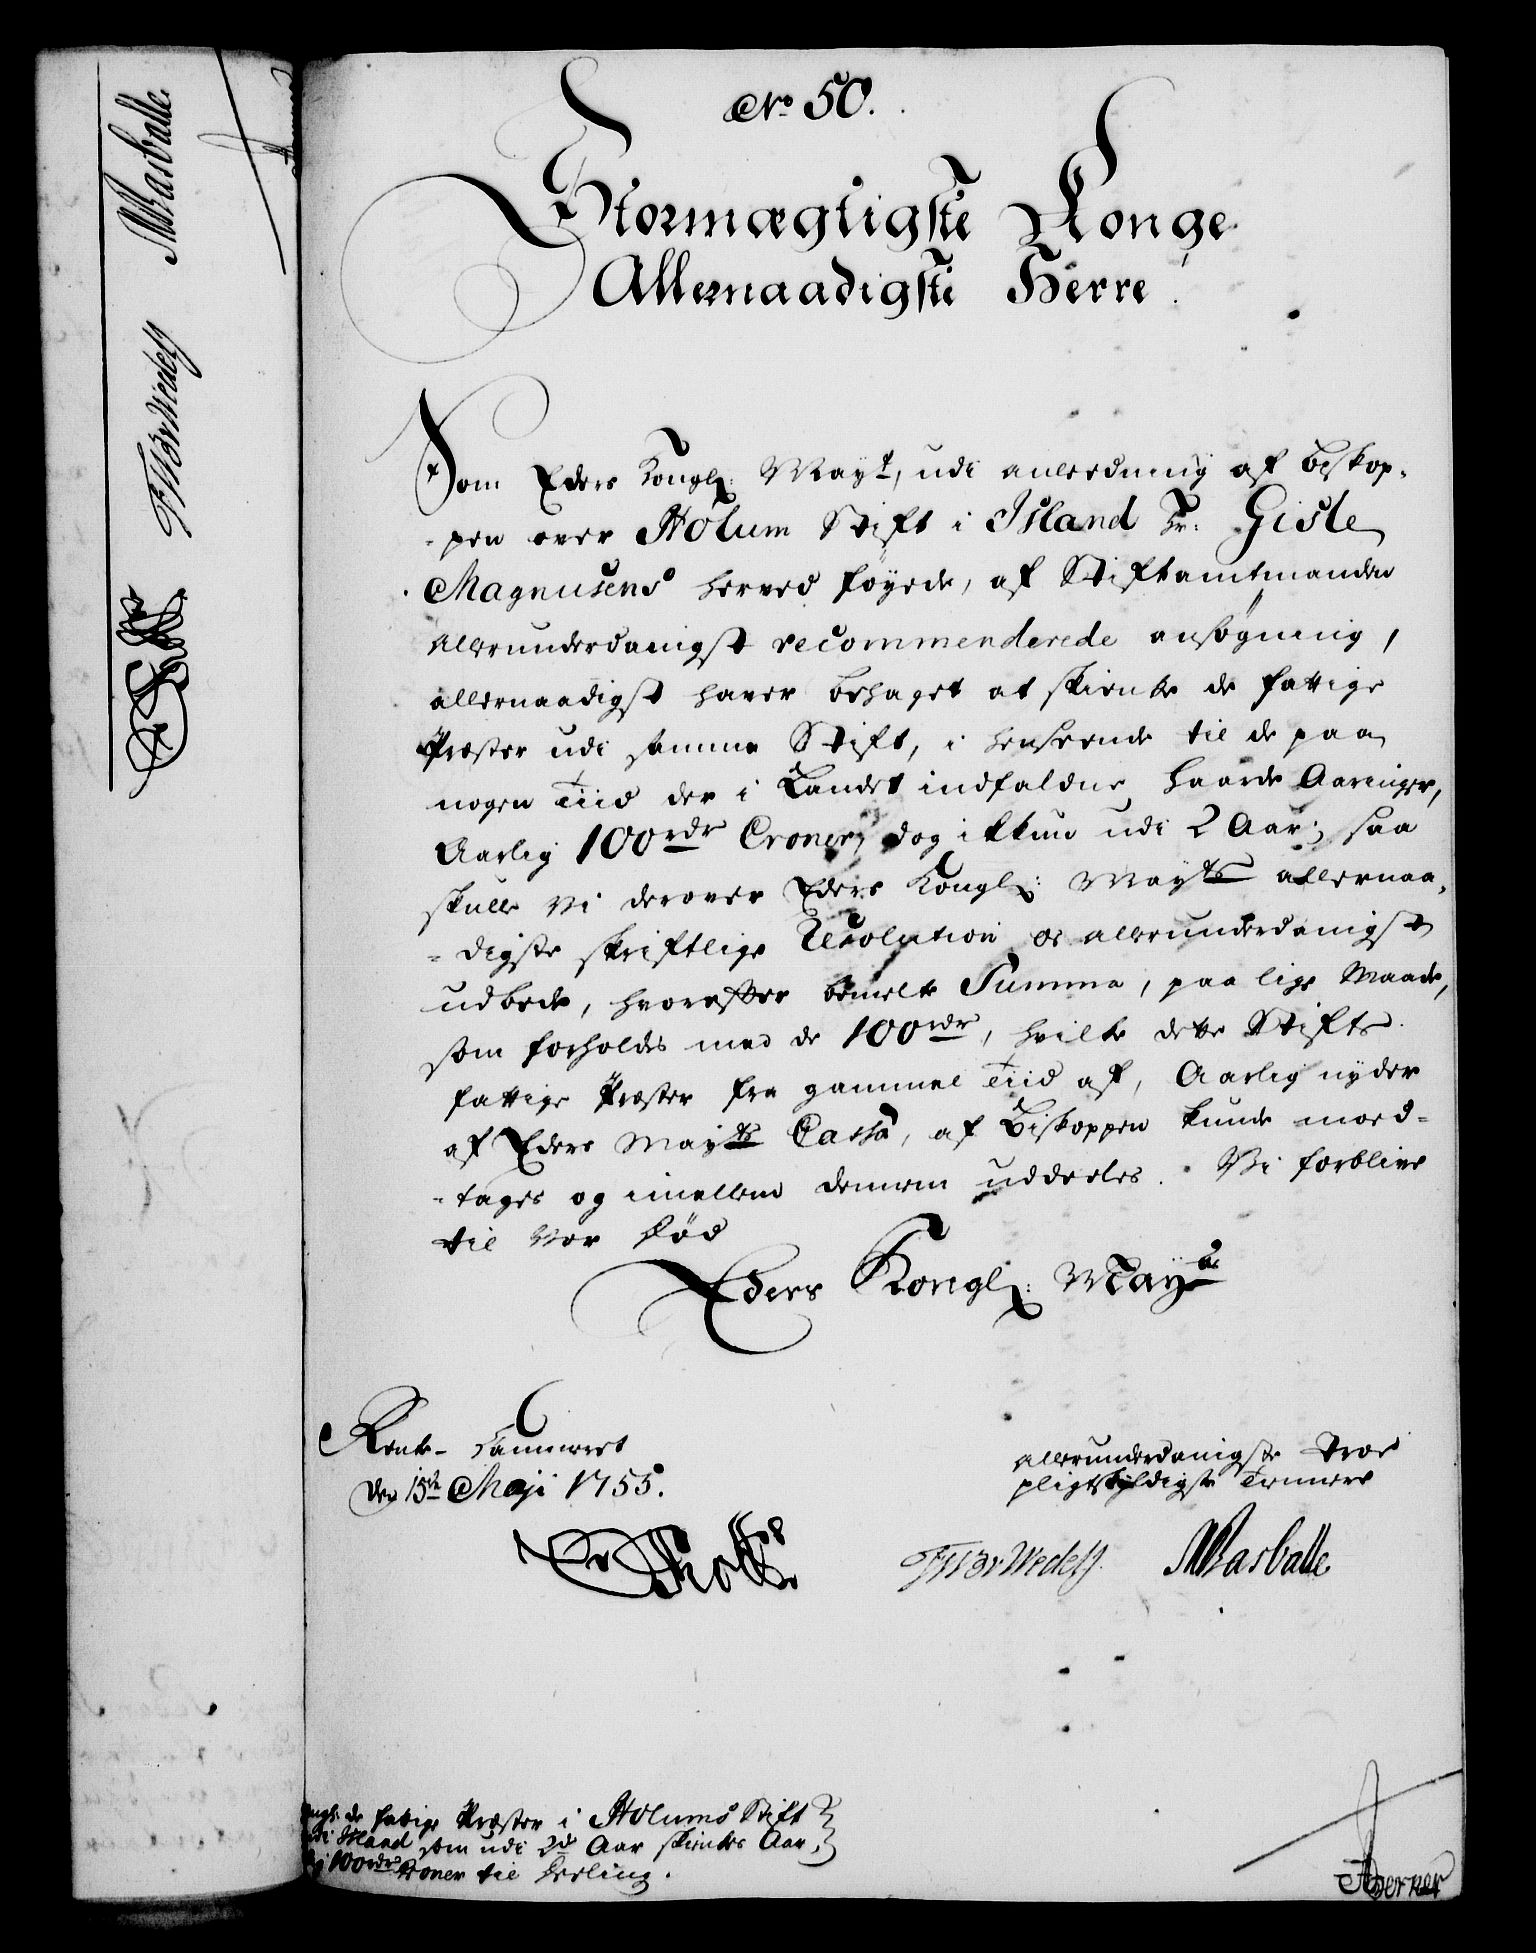 No 50.
Stormægtigste Konge
Allernaadigste Herre.
Som Eders Kongl: Mayt, udi anleedning af Biskop-
-pen over Holum Stift i Island Hr: Gisle
Magnusens herved føyede, af Stiftamtmanden
allerunderdanigst recommenderede ansøgning,
allernaadigst haver behaget at skienke de fattige
Præster udi samme Stift, i henseende til de paa
nogen Tiid der i Landet indfaldne haarde Aaringer,
Aarlig 100rdr Croner, dog ikkun udi 2 Aar; saa
skulle vi derover Eders Kongl: Mayts allernaa-
-digste skriftlige Resolution os allerunderdanigst
udbede, hvorefter bemelte Summa, paa lige Maade,
som forholdes med de 100rdr, hvilke dette Stifts
fattige Præster fra gammel Tiid af, Aarlig nyder
af Eders Mayts Cassa, af Biskoppen kunde mod-
-tages og imellem dennem uddeeles. Vi forblive
til vor Død
Eders Kongl: Mayts
Rente-Cammeret
den 15de Maji 1755.
allerunderdanigste troe
pligtskyldigste Tienere
Holst
FWvWedell
MBasballe
Angl: de fattige Præster i Holums Stift
udi Island som udi 2de Aar skienkes Aar-
lig 100rdr Croner til Deeling.